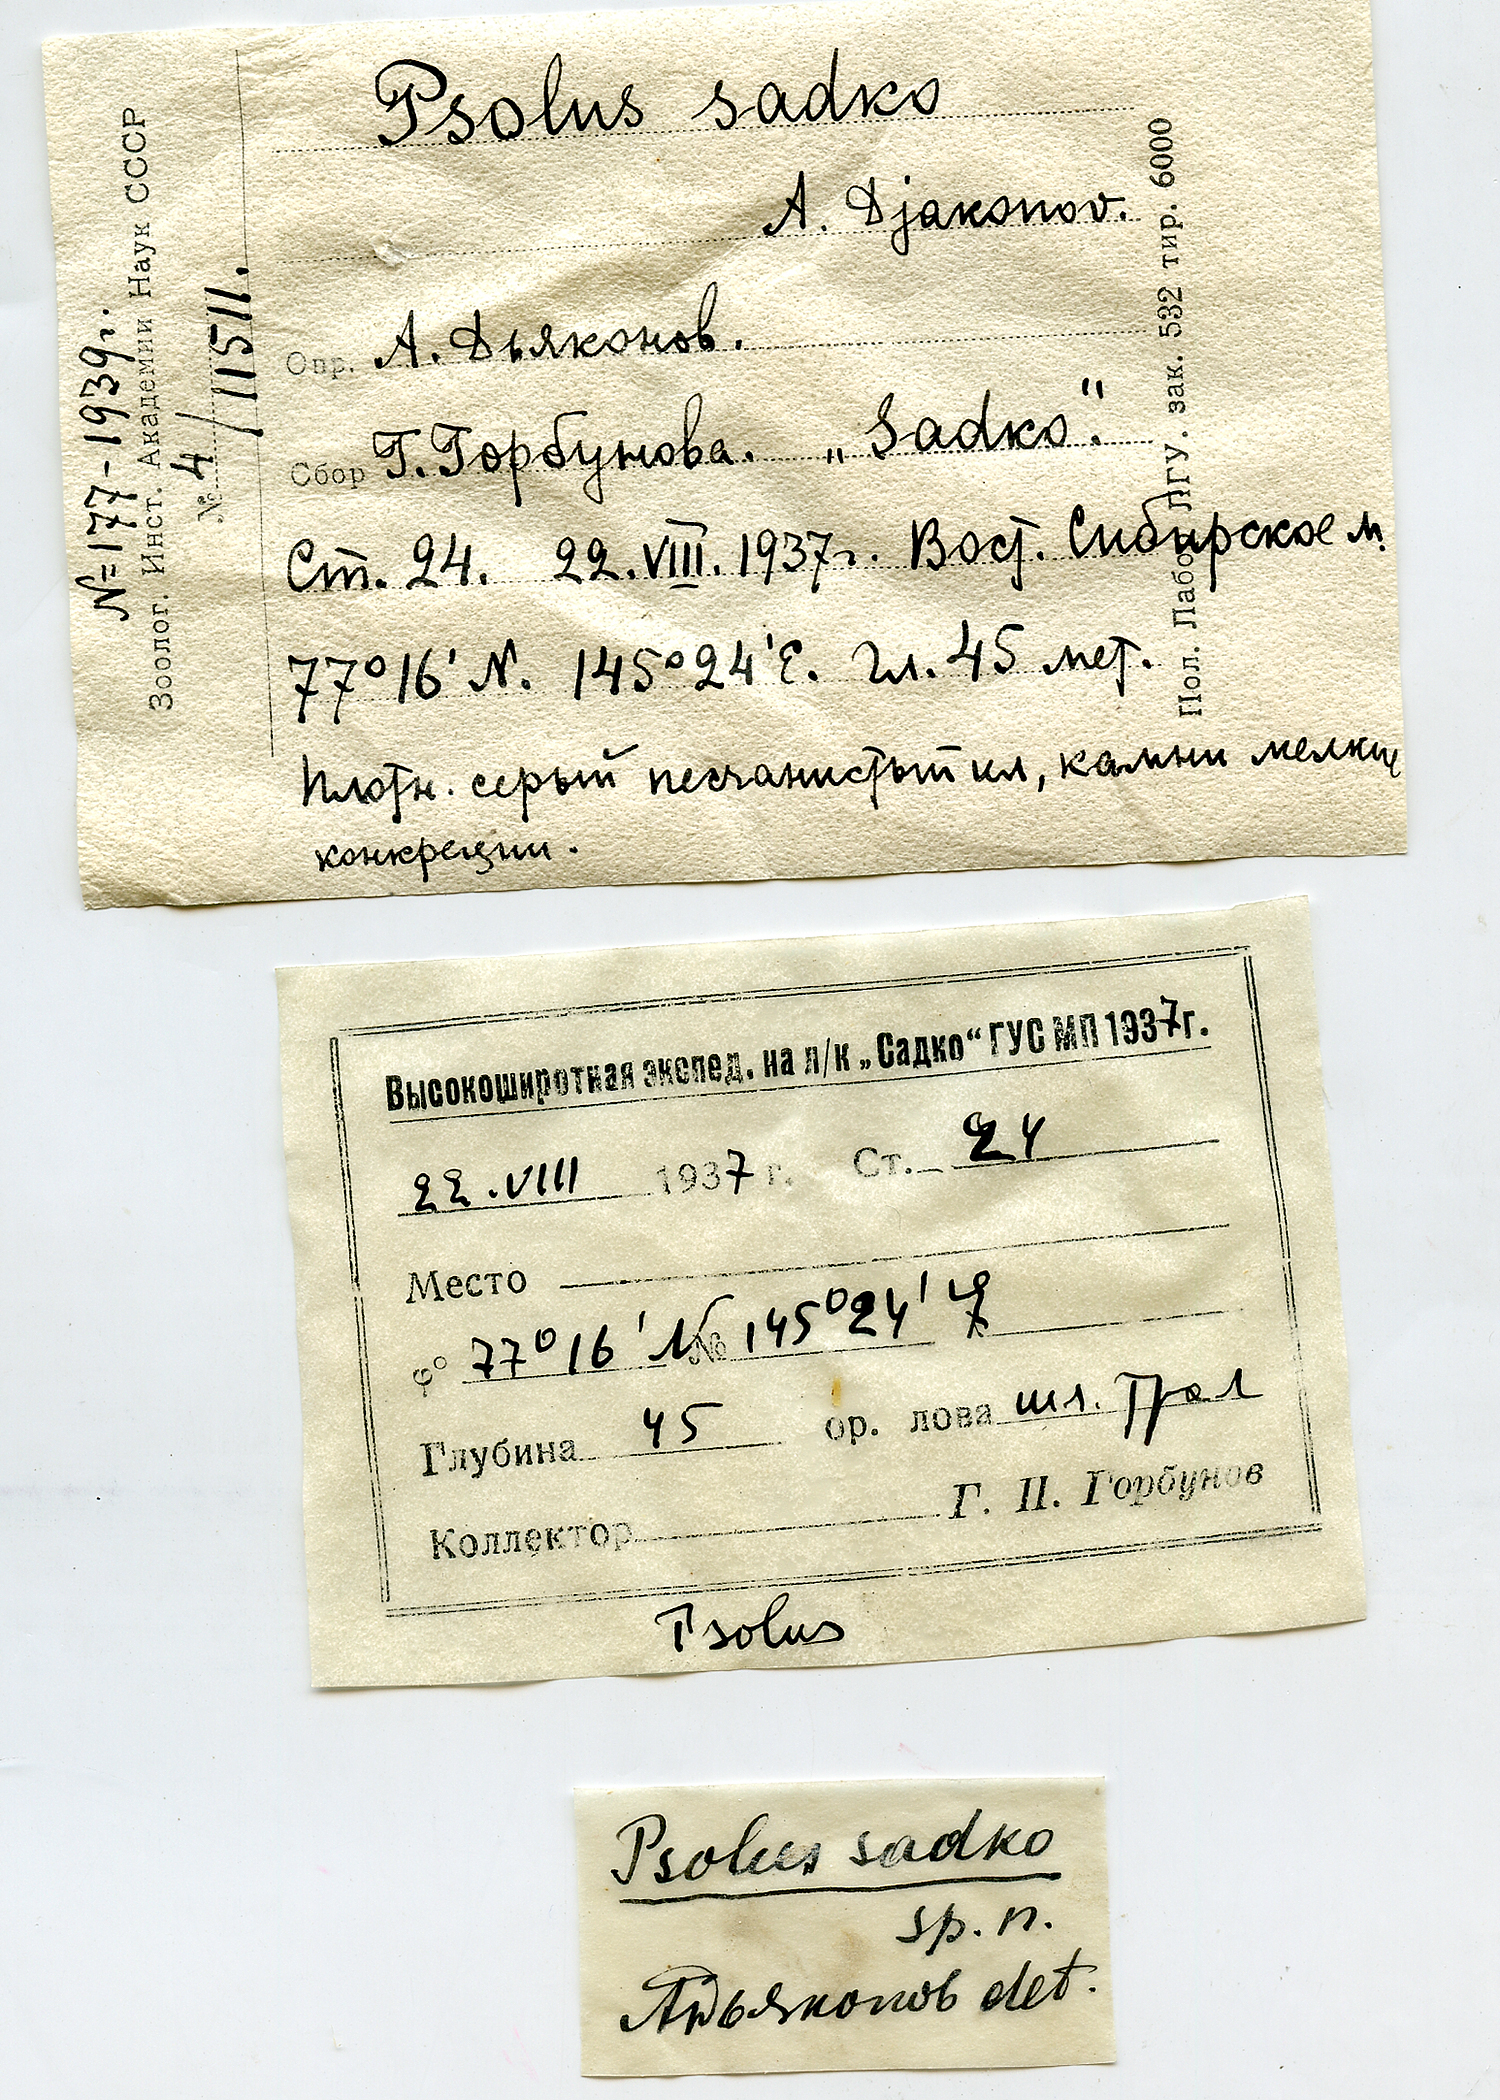 Psolus sadko
A. Djakonov.
Опр. А. Дьяконов.
Сбор Г. Горбунова. „Sadko“.
Ст. 24. 22.VIII.1937г. Вост. Сибирское м.
77°16' N. 145°24' E. Гл. 45 мет.
Плотн. серый песчанистый ил, камни мелкие
конкреции.
N=177-1939г.
Зоолог. Инст. Академии Наук СССР
№ 4/11511.
Пол. Лабо. ЛГУ. зак. 532 тир. 6000
Высокоширотная экспед. на л/к „Садко“ ГУС МП 1937г.
22.VIII 1937 г. Ст. 24
Место
φ° 77°16' N № 145°24'
Глубина 45 ор. лова шл. трал
Коллектор Г. П. Горбунов
Psolus
Psolus sadko
sp. n.
АДьяконов det.